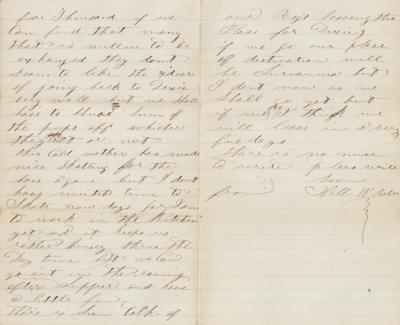 five Thousand if we
Can find that many
that is willen to be
exchanged they dont
Seam to like the idear
of going back to Dixie
very well but we Shall
have to Shuve Sum of
the pups off whether
they like it or not
the Cold wether has made
nice Skating for the
boys again but I dont
have mutch time to
Skate now days for I am
to work in the Kitchen
yet and it keeps us
rather busy threw the
Day time but we Can
go out in the evening
after Supper and have
a little fun
there is Sum talk of
our Regt leaving this
Place for Dixie
if we go our place
of destination will
be Survanna but
I dont now as we
Shall go yet but
if we do we
will leave in a very
few days
there is no more
to write please write
Soon
from Will W